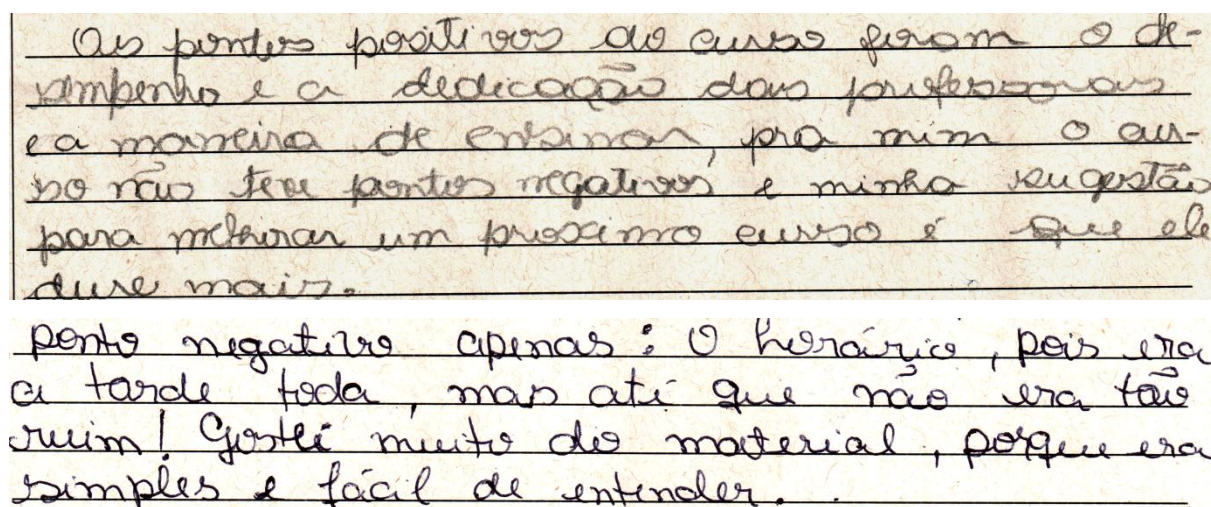 Os pontos positivos do curso foram o de-
sempenho e a dedicação dos professores
e a maneira de ensinar, pra mim o cur-
so não teve pontos negativos e minha sugestão
para melhorar um proximo curso é que ele
dure mais.
ponto negativo apenas: O horário, pois era
a tarde toda, mas até que não era tão
ruim! Gostei muito do material, porque era
simples e fácil de entender.